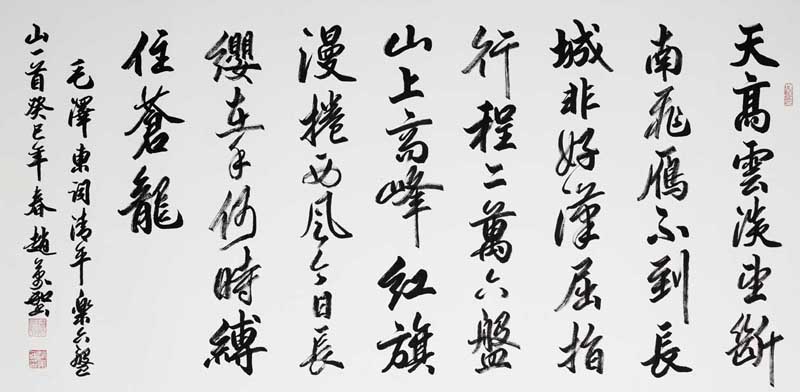 天高雲淡望斷
南飛雁不到長
城非好漢屈指
行程二萬六盤
山上高峰紅旗
漫捲西風今日長
纓在手何時縛
住蒼龍
毛澤東詞清平樂六盤
山一首癸巳年春趙